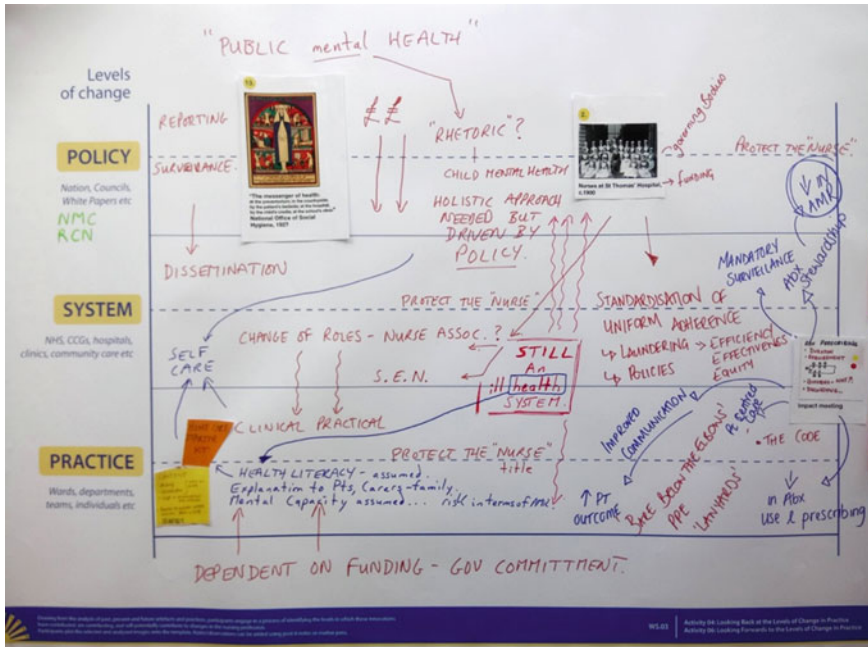 "PUBLIC mental HEALTH"
Levels
of change
POLICY
Nation, Councils,
White Papers etc
NMC
RCN
SYSTEM
NHS, CCGs, hospitals,
clinics, community care etc
PRACTICE
Wards, departments,
teams, individuals etc
REPORTING
SURVEILLANCE.
DISSEMINATION
"The messenger of health:
National Office of Social
Hygiene, 1927
£ £
"RHETORIC"?
CHILD MENTAL HEALTH
HOLISTIC APPROACH
NEEDED BUT
DRIVEN BY
POLICY.
Nurses at St Thomas' Hospital,
c.1900
governing Bodies
FUNDING
PROTECT THE "NURSE"
↓ IN
AMR
MANDATORY
SURVEILLANCE
Abx
Stewardships
PROTECT THE "NURSE"
CHANGE OF ROLES - NURSE ASSOC. ?
S.E.N.
SELF
CARE
STILL
An
ill health
SYSTEM.
STANDARDISATION OF
UNIFORM ADHERENCE
↳ LAUNDERING → EFFICIENCY
↳ POLICIES
EFFECTIVENESS
EQUITY
Impact meeting
CLINICAL PRACTICAL
PROTECT THE "NURSE"
title
HEALTH LITERACY - assumed...
Explanation to Pts, Carers-family.
Mental Capacity assumed... risk in terms of
IMPROVED
COMMUNICATION
Pt Centred
Care
• THE CODE
↑ PT
OUTCOME
'BARE BELOW THE ELBONS'
PPE
'LANYARDS'
↓
in Abx
use & prescribing
DEPENDENT ON FUNDING - GOV COMMITTMENT.
WS.03
Activity 04: Looking Back at the Levels of Change in Practice
Activity 06: Looking Forwards to the Levels of Change in Practice